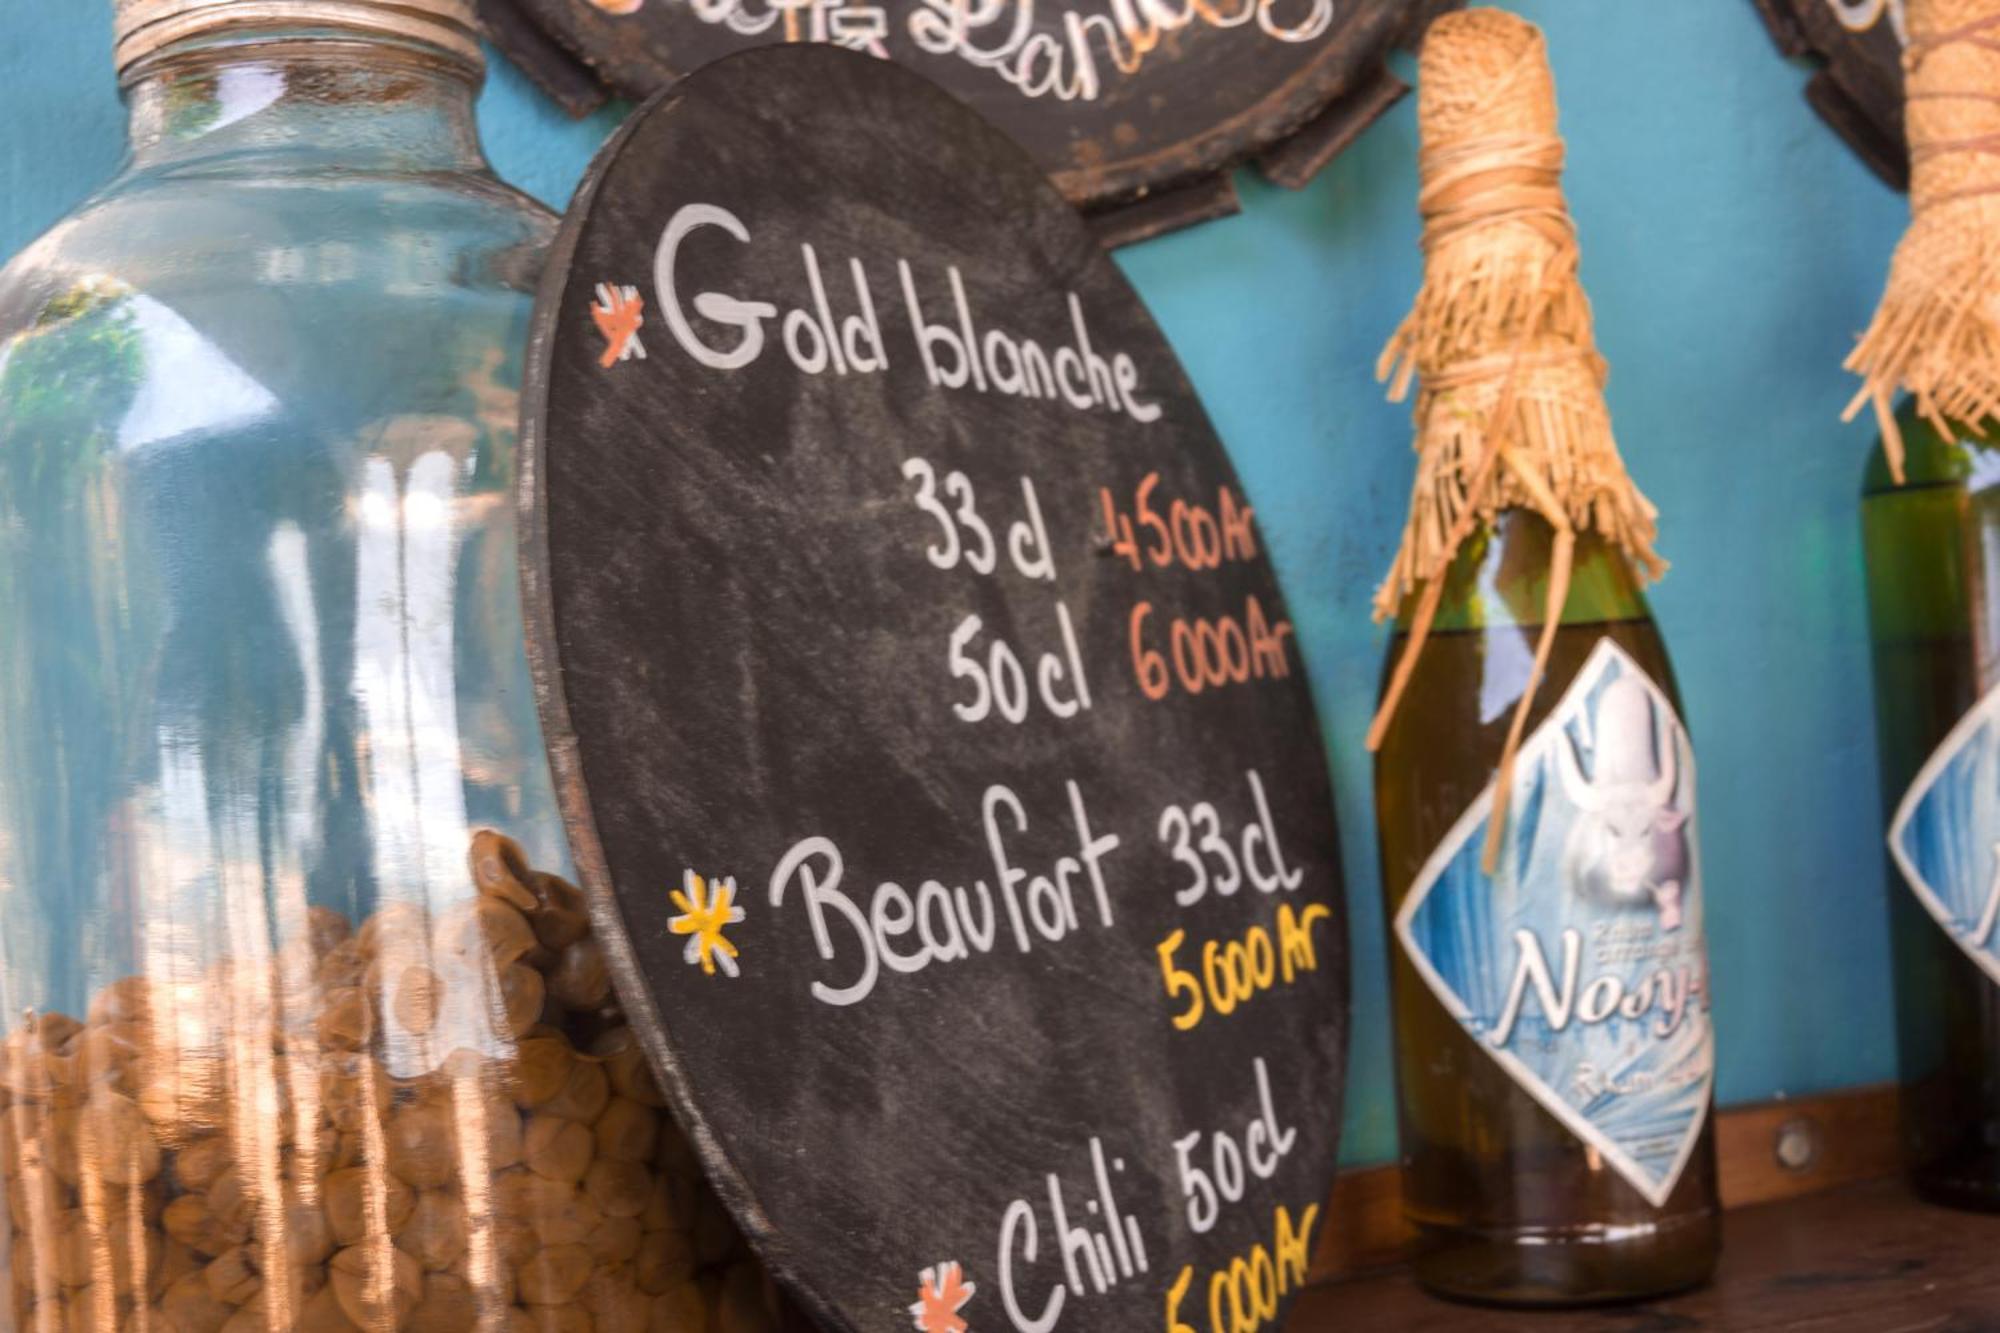 Gold blanche
33 cl 4500Ar
50 cl 6000Ar
Beaufort 33cl
5000Ar
Chili 50cl
5000Ar
Nosy